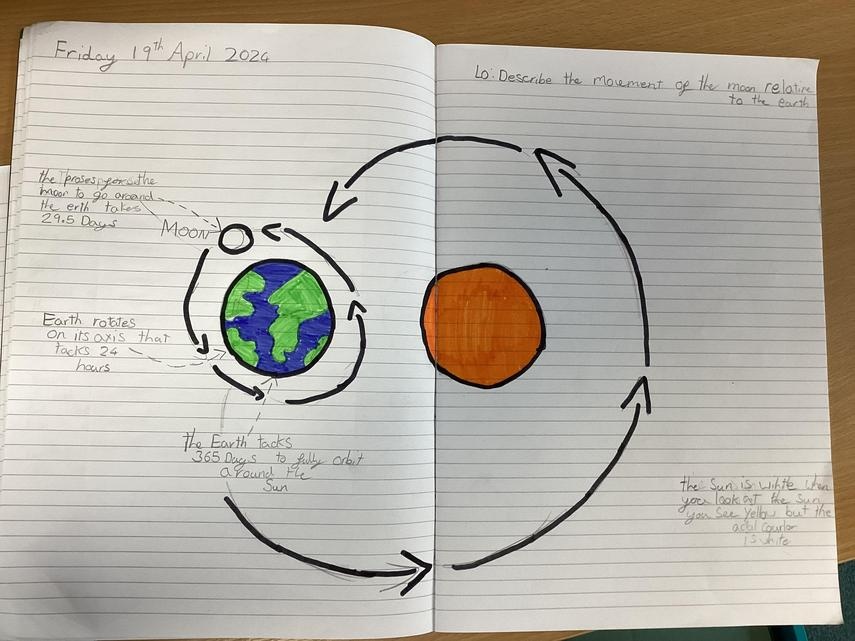 Friday 19th April 2024
Lo: Describe the movement of the moon relative
to the earth
the proses the
moon to go around
the erth takes
29.5 Days
Moon
Earth rotates
on its axis that
tacks 24
hours
the Earth tacks
365 Days to fully orbit
around the
Sun
the Sun is white when
you look at the Sun
you see Yellow but the
is white